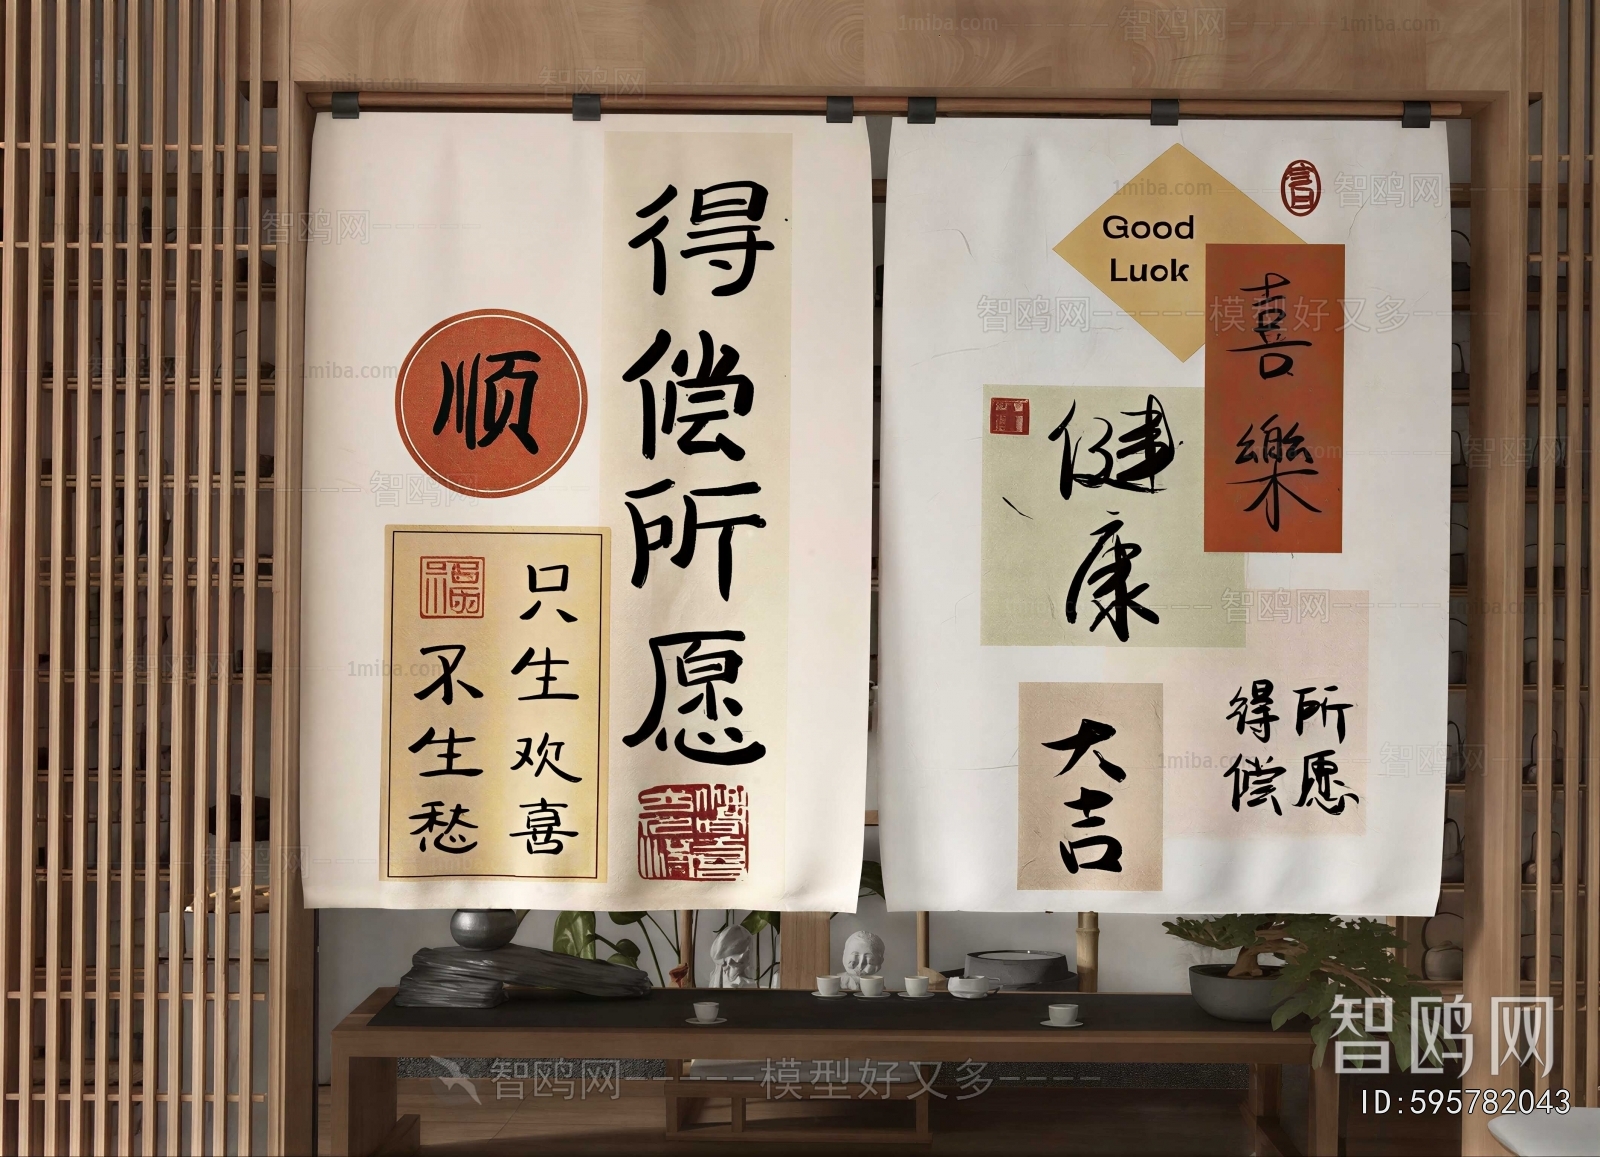 得偿所愿
顺
只生欢喜
不生愁
福
Good
Luok
喜樂
健康
所愿
得偿
大吉
智鸥网
模型好又多
1miba.com
智鸥网
ID:595782043